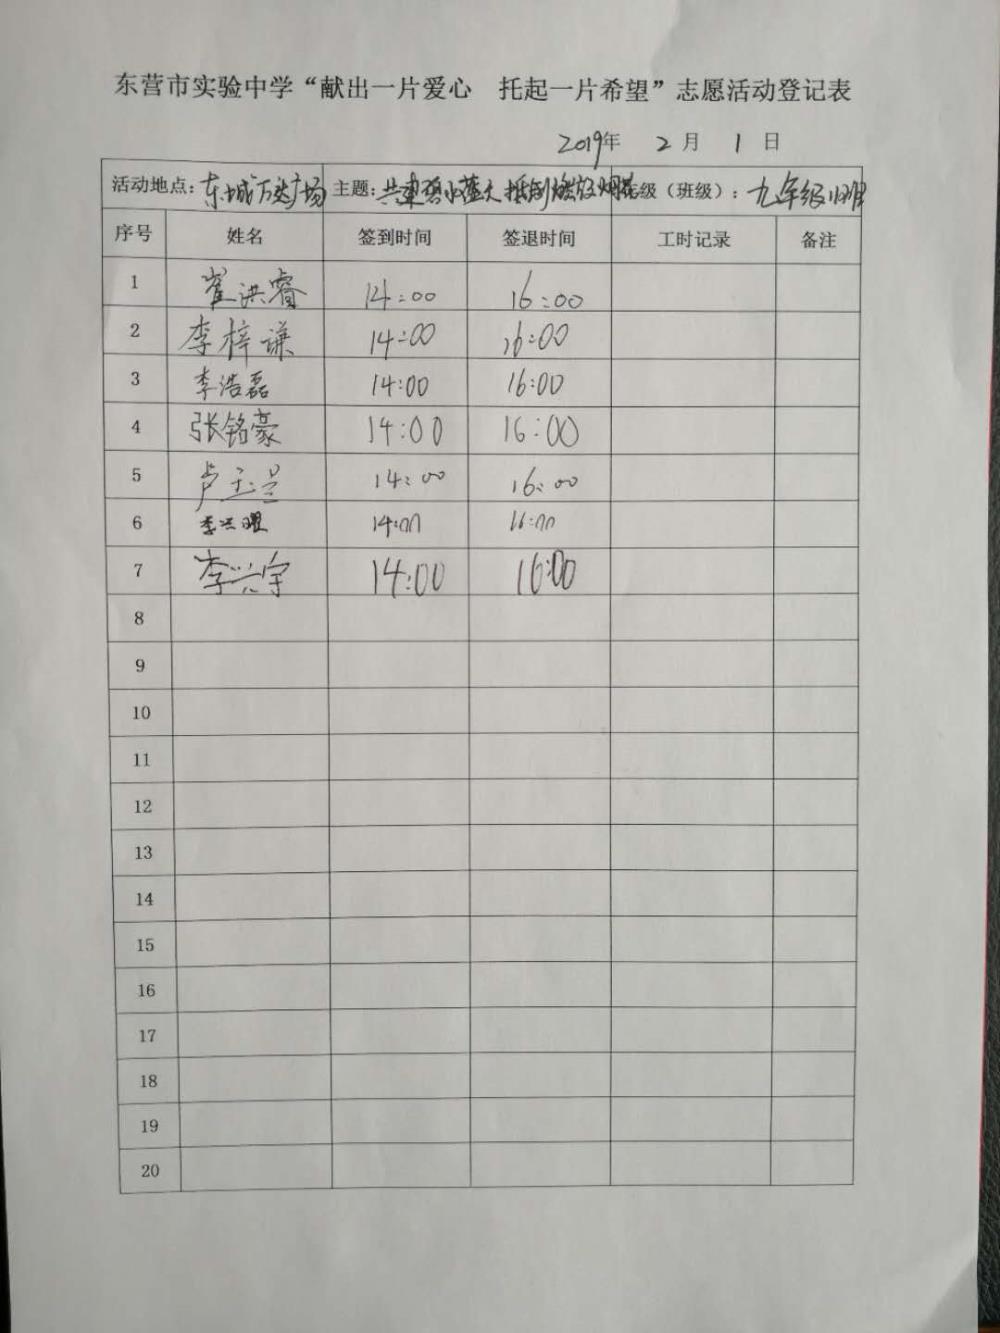 东营市实验中学“献出一片爱心 托起一片希望”志愿活动登记表
2019年 2 月 1 日
活动地点：东城万达广场 主题：共建碧水蓝天 抵制燃放烟花 年级（班级）：九年级
序号 姓名 签到时间 签退时间 工时记录 备注
1 崔洪睿 14:00 16:00
2 李梓谦 14:00 16:00
3 李浩磊 14:00 16:00
4 张铭豪 14:00 16:00
5 卢玉兰 14:00 16:00
6 李洪曜 14:00 16:00
7 李兴宇 14:00 16:00
8
9
10
11
12
13
14
15
16
17
18
19
20